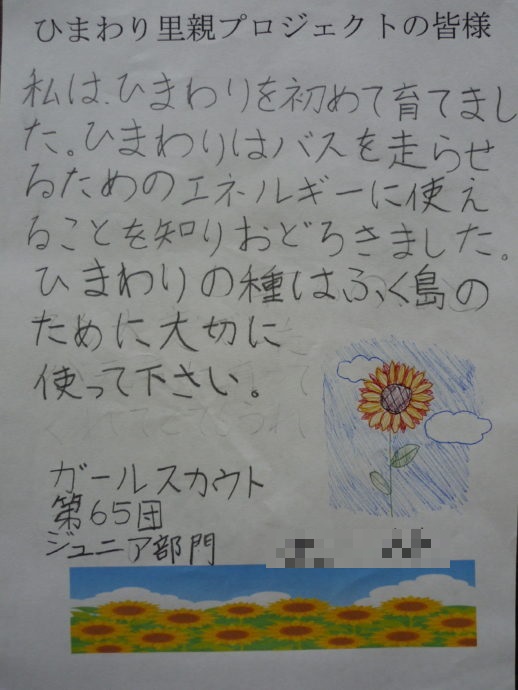 ひまわり里親プロジェクトの皆様
私は、ひまわりを初めて育てまし
た。ひまわりはバスを走らせ
るためのエネルギーに使え
ることを知りおどろきました。
ひまわりの種はふく島の
ために大切に
使って下さい。
ガールスカウト
第65団
ジュニア部門